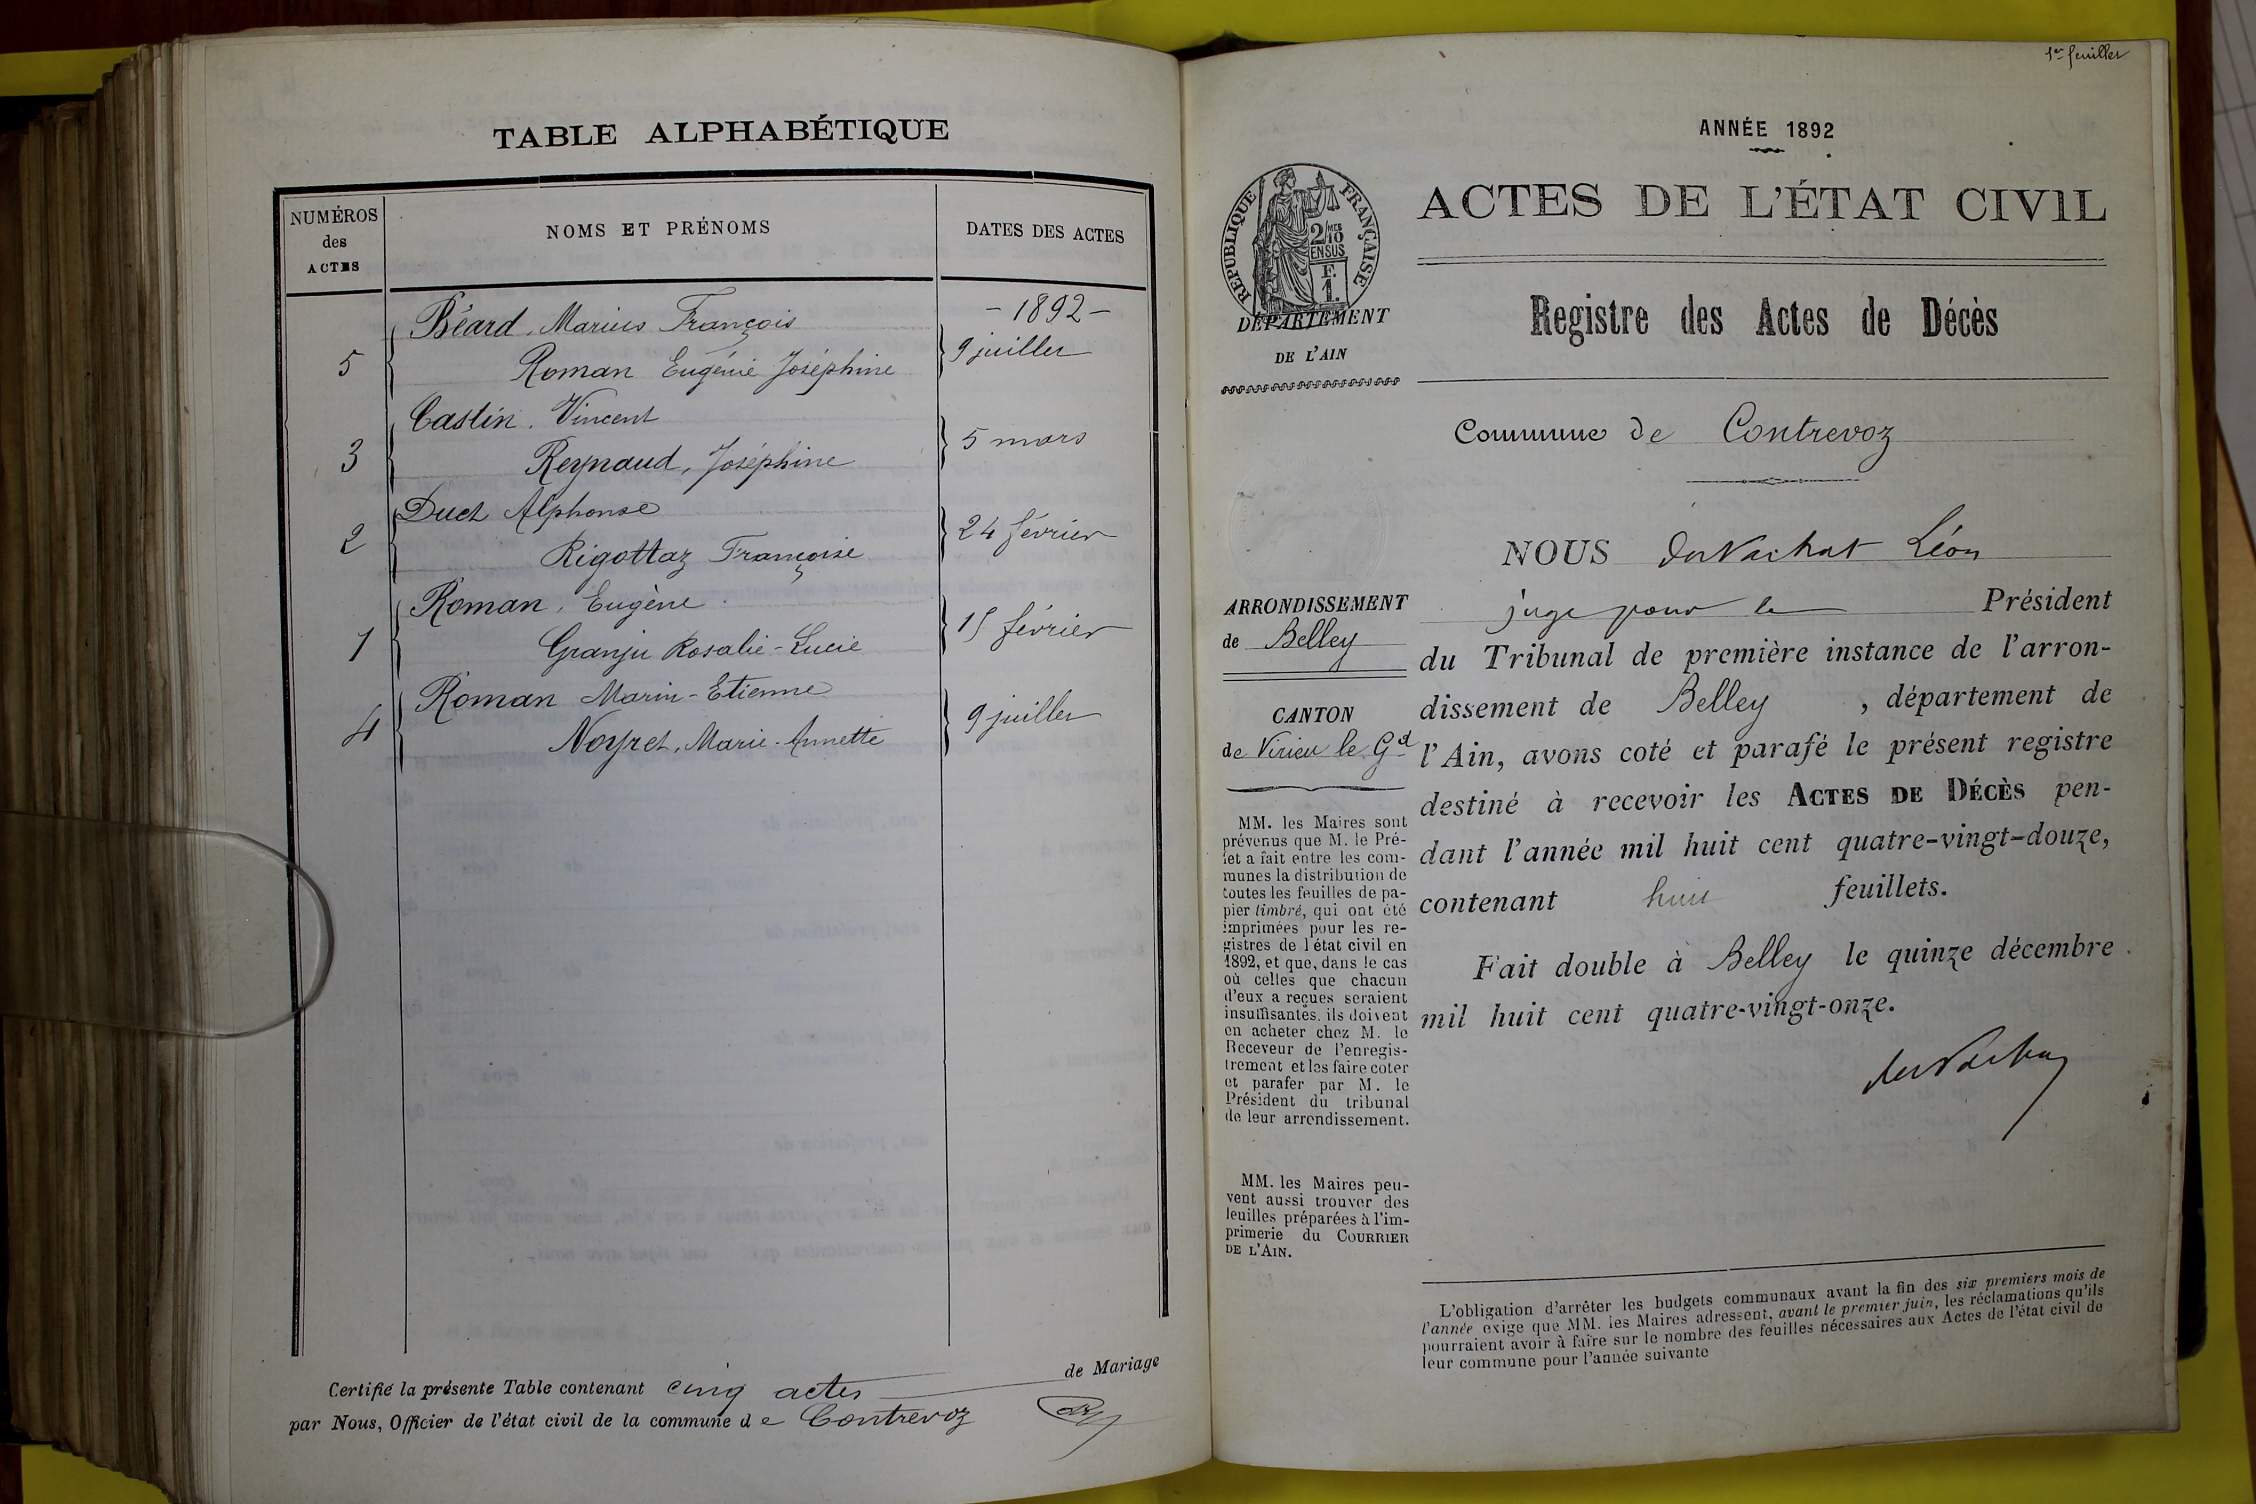 TABLE ALPHABÉTIQUE
NUMÉROS
des
ACTES
NOMS ET PRÉNOMS
DATES DES ACTES
- 1892 -
Béard, Marius François
5
Roman Eugénie Joséphine
9 juillet
Castin, Vincent
3
Reynaud, Joséphine
5 mars
Duet Alphonse
2
Rigottaz Françoise
24 février
Roman, Eugène
1
Granju Rosalie-Lucie
15 février
Roman Marin-Etienne
4
Noyret, Marie-Annette
9 juillet
Certifié la présente Table contenant cinq actes de Mariage
par Nous, Officier de l'état civil de la commune de Contrevoz
1er feuillet
ANNÉE 1892
RÉPUBLIQUE FRANÇAISE
2/10
MES
EN SUS
F.
1.
DÉPARTEMENT
DE L'AIN
ACTES DE L'ÉTAT CIVIL
Registre des Actes de Décès
Commune de Contrevoz
ARRONDISSEMENT
de Belley
CANTON
de Virieu le Gd
MM. les Maires sont
prévenus que M. le Pré-
fet a fait entre les com-
munes la distribution de
toutes les feuilles de pa-
pier timbré, qui ont été
imprimées pour les re-
gistres de l'état civil en
1892, et que, dans le cas
où celles que chacun
d'eux a reçues seraient
insuffisantes, ils doivent
en acheter chez M. le
Receveur de l'enregis-
trement et les faire coter
et parafer par M. le
Président du tribunal
de leur arrondissement.
MM. les Maires peu-
vent aussi trouver des
feuilles préparées à l'im-
primerie du COURRIER
DE L'AIN.
NOUS Léon
juge pour le Président
du Tribunal de première instance de l'arron-
dissement de Belley, département de
l'Ain, avons coté et parafé le présent registre
destiné à recevoir les ACTES DE DÉCÈS pen-
dant l'année mil huit cent quatre-vingt-douze,
contenant huit feuillets.
Fait double à Belley le quinze décembre
mil huit cent quatre-vingt-onze.
L'obligation d'arrêter les budgets communaux avant la fin des six premiers mois de
l'année exige que MM. les Maires adressent, avant le premier juin, les réclamations qu'ils
pourraient avoir à faire sur le nombre des feuilles nécessaires aux Actes de l'état civil de
leur commune pour l'année suivante